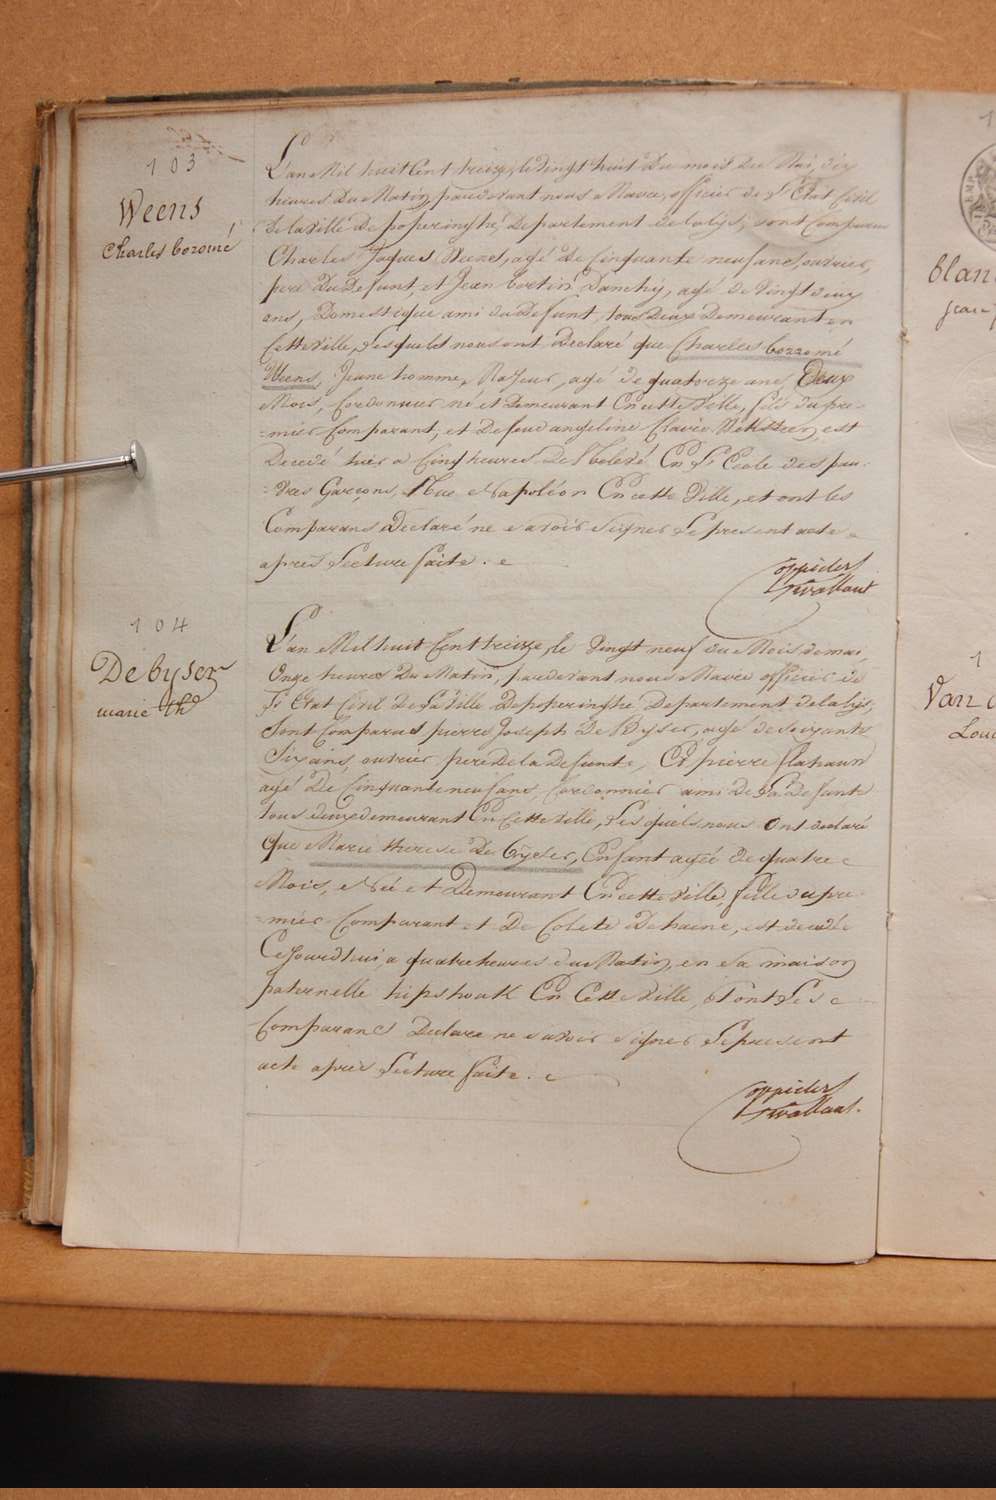 103
Weens
Charles boromé
L'an Mil huit Cent treize, le Vingt huit du mois du Mai, dix
heures du Matin, pardevant nous Maire, officier de L'Etat Civil
de la Ville de poperinghé, Departement de la lys, sont Comparus
Charles Jaques Weens, agé de Cinquante neuf ans, ouvrier,
pere du Defunt, et Jean Danchy, agé de Vingt deux
ans, Domestique ami du Defunt, tous deux Demeurant en
Cette Ville, Lesquels nous ont Declaré que Charles borromé
Weens, Jeune homme, Majeur, agé de quatorze ans Deux
Mois, Cordonnier né et Demeurant En cette Ville, fils du pre-
=mier Comparant, et De feue angeline Claire, est
Decedé hier a Cinq heures de Relevé En L'Ecole des pau-
=vres Garçons, Rue Napoléon En cette Ville, et ont les
Comparans Declaré ne savoir Signer Le present acte
apres Lecture faite.
104
De byser
marie th
L'an Mil huit Cent treize, le Vingt neuf du Mois de mai,
Onze heures Du Matin, pardevant nous Maire officier de
L'Etat Civil De La Ville De poperinghé Departement de la lys,
Sont Comparus pierre Joseph De Byser, agé de soixante
Six ans, ouvrier pere de la Defunte, Et pierre flahaun
agé De Cinquante neuf ans, Cordonnier ami de La Defunte
tous deux demeurant En Cette Ville, Lesquels nous Ont declaré
que Marie therese De Byser, Enfant agée de quatre
Mois, Née et Demeurant En cette Ville, fille du pre-
=mier Comparant et De Colete Dehaene, est decedée
Cejourdhui, a quatre heures du Matin, en sa maison
paternelle hipshoak En Cette Ville, Et ont Les
Comparans Declaré ne savoir signer Le present
acte après Lecture faite.
blan
jean
Van
Loui